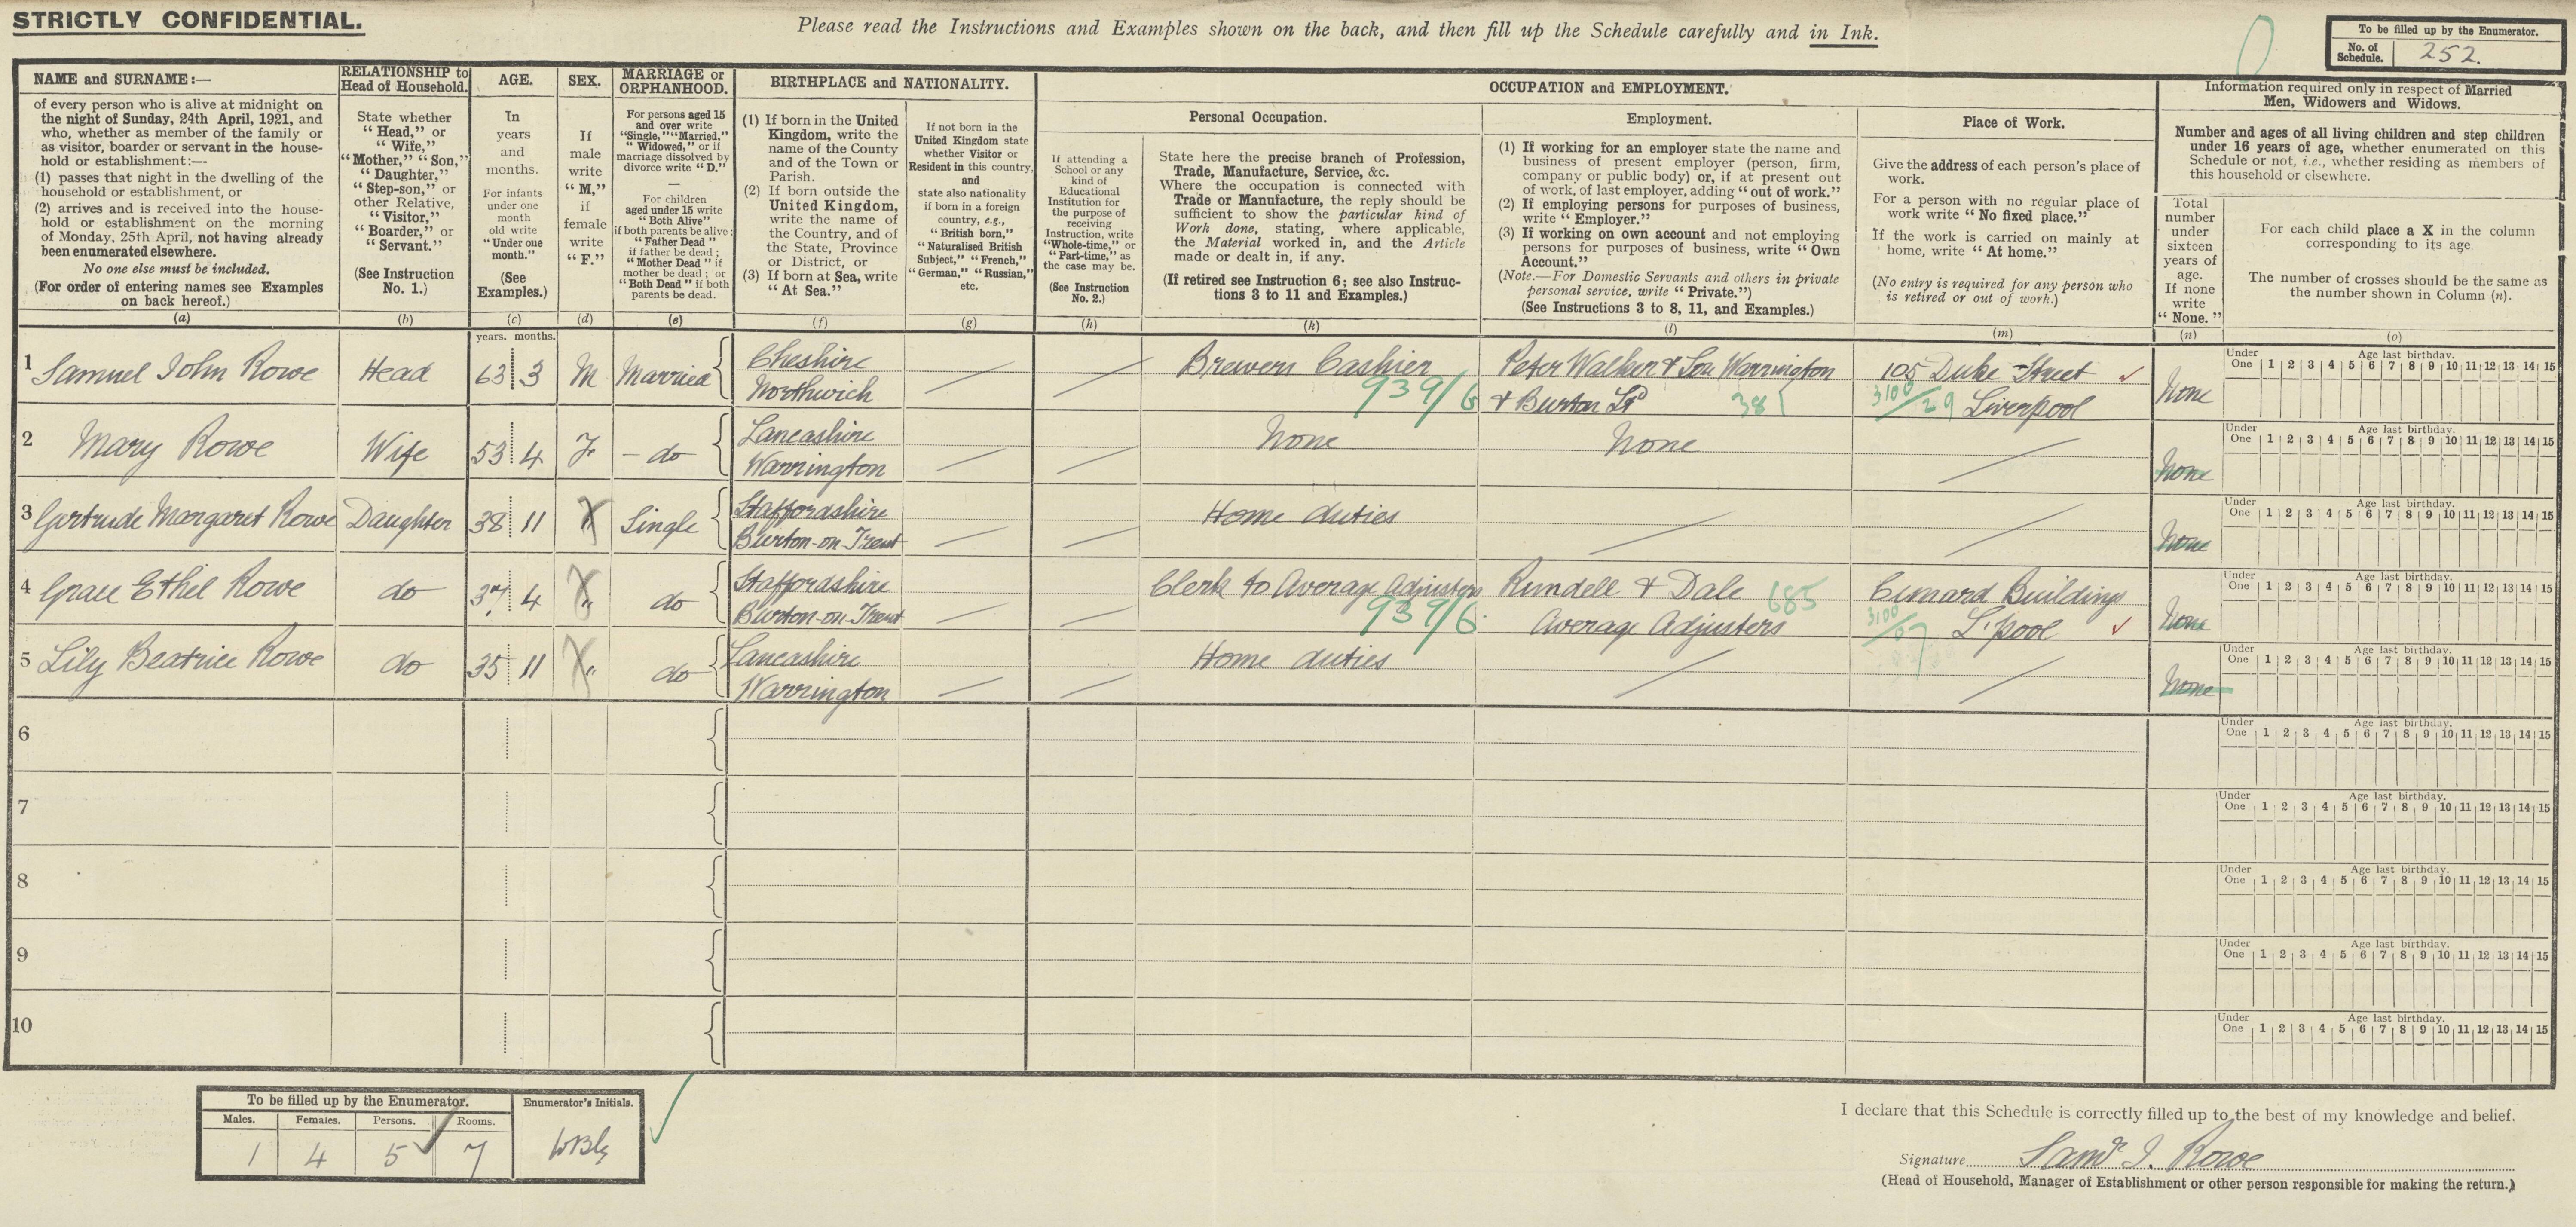 STRICTLY CONFIDENTIAL.
Please read the Instructions and Examples shown on the back, and then fill up the Schedule carefully and in Ink.
To be filled up by the Enumerator.
No. of Schedule. 252.
NAME and SURNAME:—
of every person who is alive at midnight on
the night of Sunday, 24th April, 1921, and
who, whether as member of the family or
as visitor, boarder or servant in the house-
hold or establishment:—
(1) passes that night in the dwelling of the
household or establishment, or
(2) arrives and is received into the house-
hold or establishment on the morning
of Monday, 25th April, not having already
been enumerated elsewhere.
No one else must be included.
(For order of entering names see Examples
on back hereof.)
(a)
RELATIONSHIP to
Head of Household.
State whether
"Head," or
"Wife,"
"Mother," "Son,"
"Daughter,"
"Step-son," or
other Relative,
"Visitor,"
"Boarder," or
"Servant."
(See Instruction
No. 1.)
(b)
AGE.
In
years
and
months.
For infants
under one
month
old write
"Under one
month."
(See
Examples.)
(c)
SEX.
If
male
write
"M,"
if
female
write
"F."
(d)
MARRIAGE or
ORPHANHOOD.
For persons aged 15
and over write
"Single," "Married,"
"Widowed," or if
marriage dissolved by
divorce write "D."
—
For children
aged under 15 write
"Both Alive"
if both parents be alive;
"Father Dead"
if father be dead;
"Mother Dead" if
mother be dead; or
"Both Dead" if both
parents be dead.
(e)
BIRTHPLACE and NATIONALITY.
(1) If born in the United
Kingdom, write the
name of the County
and of the Town or
Parish.
(2) If born outside the
United Kingdom,
write the name of
the Country, and of
the State, Province
or District, or
(3) If born at Sea, write
"At Sea."
(f)
If not born in the
United Kingdom state
whether Visitor or
Resident in this country,
and
state also nationality
if born in a foreign
country, e.g.,
"British born,"
"Naturalised British
Subject," "French,"
"German," "Russian,"
etc.
(g)
OCCUPATION and EMPLOYMENT.
If attending a
School or any
kind of
Educational
Institution for
the purpose of
receiving
Instruction, write
"Whole-time," or
"Part-time," as
the case may be.
(See Instruction
No. 2.)
(h)
Personal Occupation.
State here the precise branch of Profession,
Trade, Manufacture, Service, &c.
Where the occupation is connected with
Trade or Manufacture, the reply should be
sufficient to show the particular kind of
Work done, stating, where applicable,
the Material worked in, and the Article
made or dealt in, if any.
(If retired see Instruction 6; see also Instruc-
tions 3 to 11 and Examples.)
(k)
Employment.
(1) If working for an employer state the name and
business of present employer (person, firm,
company or public body) or, if at present out
of work, of last employer, adding "out of work."
(2) If employing persons for purposes of business,
write "Employer."
(3) If working on own account and not employing
persons for purposes of business, write "Own
Account."
(Note.—For Domestic Servants and others in private
personal service, write "Private.")
(See Instructions 3 to 8, 11, and Examples.)
(l)
Place of Work.
Give the address of each person's place of
work.
For a person with no regular place of
work write "No fixed place."
If the work is carried on mainly at
home, write "At home."
(No entry is required for any person who
is retired or out of work.)
(m)
Information required only in respect of Married
Men, Widowers and Widows.
Number and ages of all living children and step children
under 16 years of age, whether enumerated on this
Schedule or not, i.e., whether residing as members of
this household or elsewhere.
Total
number
under
sixteen
years of
age.
If none
write
"None."
(n)
For each child place a X in the column
corresponding to its age.
The number of crosses should be the same as
the number shown in Column (n).
(o)
years. months.
1 Samuel John Rowe Head 63 3 M Married Cheshire Brewers Cashier Peter Walker & Son Warrington 105 Duke Street None
Northwich 939/6 & Burton Ld 381 3100/29 Liverpool
Under One 1 2 3 4 5 6 7 8 9 10 11 12 13 14 15 Age last birthday.
2 Mary Rowe Wife 53 4 F - do Lancashire None None
Warrington None
Under One 1 2 3 4 5 6 7 8 9 10 11 12 13 14 15 Age last birthday.
3 Gertrude Margaret Rowe Daughter 38 11 " Single Staffordshire Home duties
Burton-on-Trent None
Under One 1 2 3 4 5 6 7 8 9 10 11 12 13 14 15 Age last birthday.
4 Grace Ethel Rowe do 37 4 " do Staffordshire Clerk to Average Adjusters Rundell & Dale 685 Cunard Buildings
Burton-on-Trent 939/6 Average Adjusters 3100/07 L'pool None
Under One 1 2 3 4 5 6 7 8 9 10 11 12 13 14 15 Age last birthday.
5 Lily Beatrice Rowe do 35 11 " do Lancashire Home duties
Warrington None
Under One 1 2 3 4 5 6 7 8 9 10 11 12 13 14 15 Age last birthday.
6
Under One 1 2 3 4 5 6 7 8 9 10 11 12 13 14 15 Age last birthday.
7
Under One 1 2 3 4 5 6 7 8 9 10 11 12 13 14 15 Age last birthday.
8
Under One 1 2 3 4 5 6 7 8 9 10 11 12 13 14 15 Age last birthday.
9
Under One 1 2 3 4 5 6 7 8 9 10 11 12 13 14 15 Age last birthday.
10
Under One 1 2 3 4 5 6 7 8 9 10 11 12 13 14 15 Age last birthday.
To be filled up by the Enumerator.
Males. Females. Persons. Rooms.
1 4 5 7
Enumerator's Initials.
I declare that this Schedule is correctly filled up to the best of my knowledge and belief.
Signature Saml J. Rowe
(Head of Household, Manager of Establishment or other person responsible for making the return.)